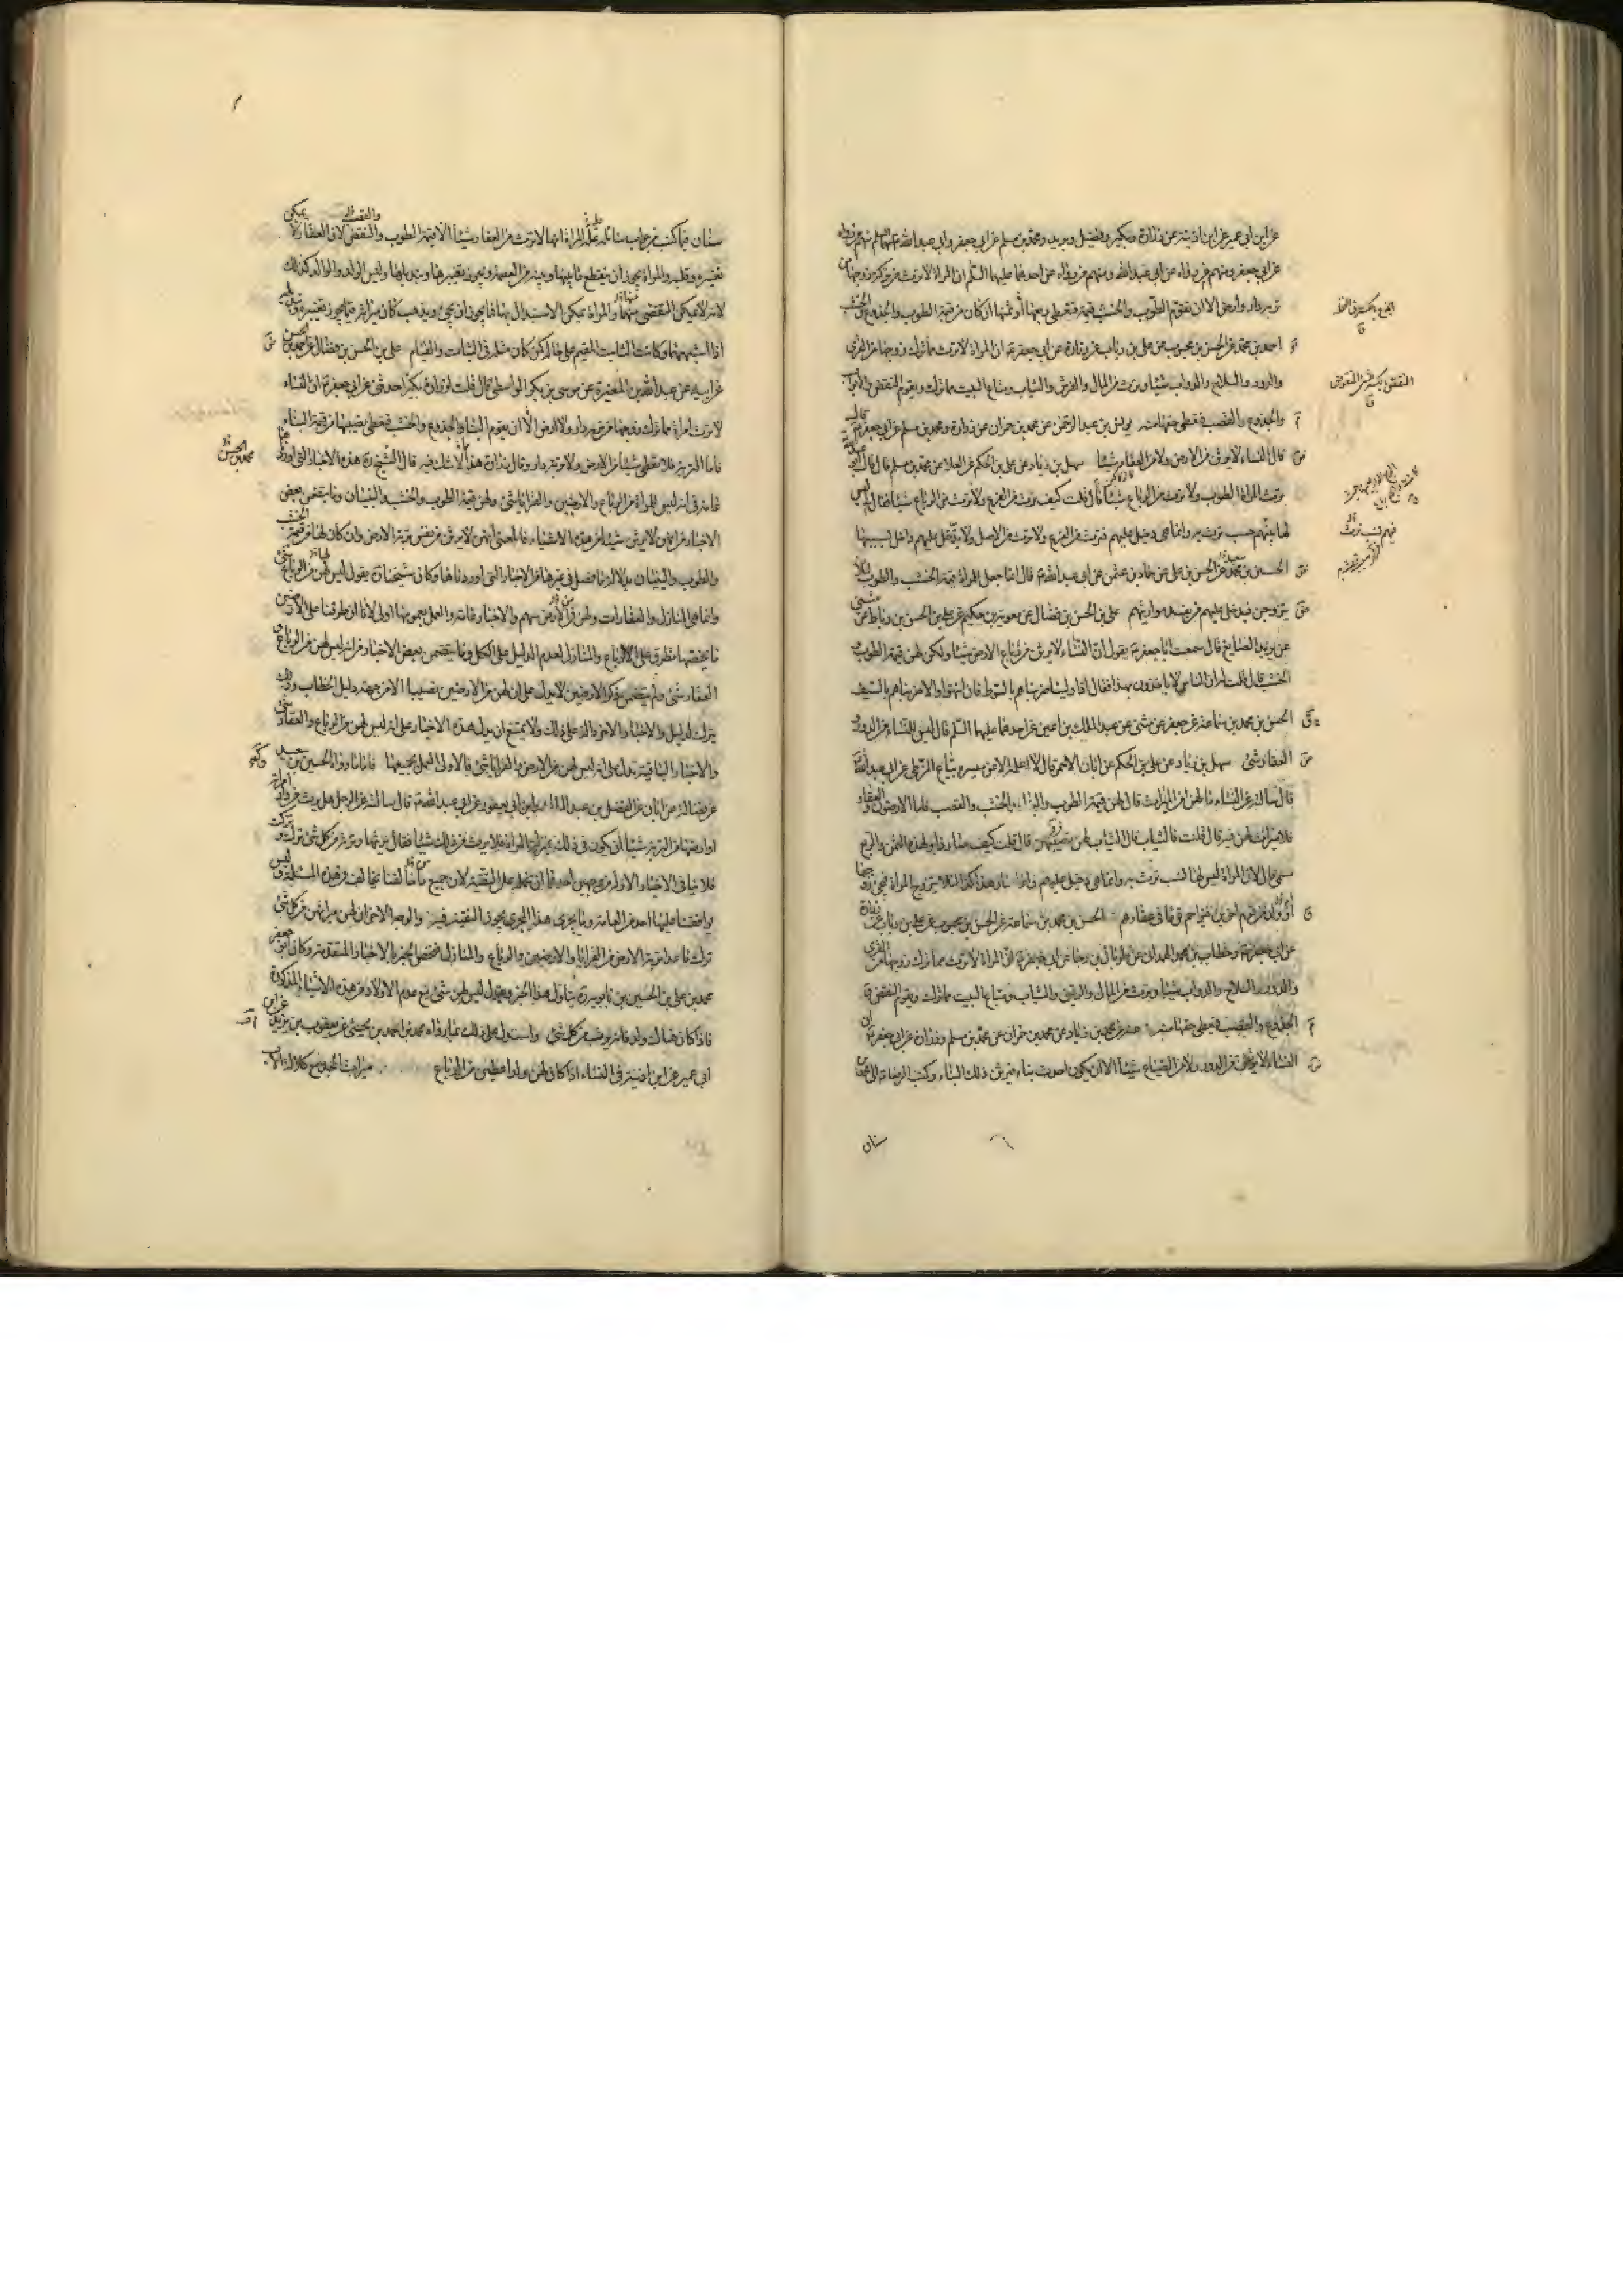 عن ابن ابي عمير عن ابن اذينة عن زرارة وبكير وفضيل وبريد ومحمد بن مسلم عن ابي جعفر وابي عبد الله عليهما السلم منهم من رواه
عن ابي جعفر ومنهم من رواه عن ابي عبد الله ومنهم من رواه عن احدهما عليهما السلم ان المراة لا ترث من تركة زوجها من
تربة دار وارض الا ان يقوم الطوب والخشب قيمة فتعطى ربعها او ثمنها ان كان من قيمة الطوب والجذوع والخشب
احمد بن محمد عن الحسن بن محبوب عن علي بن رئاب عن زرارة عن ابي جعفر ع ان المراة لا ترث مما ترك زوجها من القرى
والدور والسلاح والدواب شيئا وترث من المال والفرش والثياب ومتاع البيت مما ترك ويقوم النقض والابواب
والجذوع والقصب فتعطى حقها منه يونس بن عبد الرحمن عن محمد بن حمران عن زرارة ومحمد بن مسلم عن ابي جعفر ع قال
قال النساء لا يرثن من الارض ولا من العقار شيئا سهل بن زياد عن علي بن الحكم عن العلا عن محمد بن مسلم قال قال ابو عبد الله
ترث المراة الطوب ولا ترث من الرباع شيئا قال قلت كيف ترث من الفرع ولا ترث من الرباع شيئا فقال لي ليس
لها منهم حسب ترث به وانما هي دخيل عليهم فترث من الفرع ولا ترث من الاصل ولا يدخل عليهم داخل بسببها
الحسين بن محمد عن الحسن بن علي عن حماد بن عثمن عن ابي عبد الله ع قال انما جعل للمراة قيمة الخشب والطوب لئلا
يتزوجن فيدخل عليهم من يفسد مواريثهم علي بن الحسن بن فضال عن معوية بن حكيم عن علي بن الحسن بن رباط عن مثنى
عن يزيد الصايغ قال سمعت ابا جعفر ع يقول ان النساء لا يرثن من رباع الارض شيئا ولكن لهن قيمة الطوب
الخشب قال قلت له ان الناس لا ياخذون بهذا فقال اذا ولينا ضربناهم بالسوط فان انتهوا والا ضربناهم بالسيف
الحسن بن محمد بن سماعة عن جعفر عن مثنى عن عبد الملك بن اعين عن احدهما عليهما السلم قال ليس للنساء من الدور و
العقار شئ سهل بن زياد عن علي بن الحكم عن ابان الاحمر قال لا اعلمه الا عن ميسر بياع الزطي عن ابي عبد الله
قال سالته عن النساء ما لهن من الميراث قال لهن قيمة الطوب والبناء والخشب والقصب فاما الارض والعقار
فلا ميراث لهن فيه قال قلت فالثياب قال الثياب لهن نصيبهن قال قلت كيف صار ذا ولهذه الثمن والربع
مسمى قال لان المراة ليس لها نسب ترث به وانما هي دخيل عليهم وانما صار هذا كذا لئلا تتزوج المراة فيجئ زوجها
او ولد من قوم اخرين فيزاحم قوما في عقارهم الحسن بن محمد بن سماعة عن الحسن بن محبوب عن علي بن رئاب عن زرارة
عن ابي جعفر ع وخطاب بن محمد الهمداني عن طربال بن رجا عن ابي جعفر ع ان المراة لا ترث مما ترك زوجها من القرى
والدور والسلاح والدواب شيئا وترث من المال والرقيق والثياب ومتاع البيت مما ترك ويقوم النقض و
الجذوع والقصب فتعطى حقها منه عنه عن محمد بن زياد عن محمد بن حمران عن محمد بن مسلم وزرارة عن ابي جعفر ع ان
النساء لا يرثن من الدور ولا من الضياع شيئا الا ان يكون احدث بناء فيرثن ذلك البناء وكتب الرضا ع الى محمد بن
سنان
سنان فيما كتب من جواب مسائله علة المراة انها لا ترث من العقار شيئا الا قيمة الطوب والنقض لان العقار لا يمكن
تغييره وقلبه والمراة يجوز ان ينقطع ما بينها وبينه من العصمة ويجوز تغييرها وتبديلها وليس الولد والوالد كذلك
لانه لا يمكن التفصي منهما والمراة يمكن الاستبدال بها فما يجوز ان يجئ ويذهب كان ميراثه فيما يجوز تغييره وتبديله
اذا اشبههما وكان الثابت المقيم على حاله كمن كان مثله في الثبات والقيام علي بن الحسن بن فضال عن احمد بن الحسن
عن ابيه عن عبد الله بن المغيرة عن موسى بن بكر الواسطي قال قلت لزرارة ان بكيرا حدثني عن ابي جعفر ع ان النساء
لا ترث امراة مما ترك زوجها من تربة دار ولا ارض الا ان يقوم البناء والجذوع والخشب فتعطى نصيبها من قيمة البناء
فاما التربة فلا تعطى شيئا من الارض ولا تربة دار وقال زرارة هذا لا شك فيه قال الشيخ ره هذه الاخبار التي اوردناها
عامة في انه ليس للمراة من الرباع والارضين والقرايا شئ ولهن قيمة الطوب والخشب والبنيان وما يتضمن بعض
الاخبار من انهن لا يرثن شيئا من هذه الاشياء فالمعنى انهن لا يرثن من نفس تربة الارض وان كان لهن من قيمة الخشب
والطوب والبنيان بدلالة ما فصل في غيرها من الاخبار التي اوردناها وكان شيخنا ره يقول ليس لهن من الرباع شئ
وانما هي المنازل والعقارات ولهن من الارضين سهم والاخبار عامة والعمل بعمومها اولى لانا ان طرقنا على الارضين
ما يخصها تطرق على الرباع والمنازل لعدم الدليل على الكل وما يتضمن بعض الاخبار من انه ليس لهن من الرباع و
العقار شئ ولم يتضمن ذكر الارضين لا يدل على ان لهن من الارضين نصيبا الا من جهة دليل الخطاب وذلك
يترك لدليل والاخبار الاخر دالة على ذلك ولا يمتنع ان يدل هذه الاخبار على انه ليس لهن من الرباع والعقار شئ
والاخبار الباقية تدل على انه ليس لهن من الارض والقرايا شئ فالاولى العمل بجميعها فاما ما رواه الحسين بن سعيد
عن فضالة عن ابان عن الفضل بن عبد الملك وابن ابي يعفور عن ابي عبد الله ع قال سالته عن الرجل هل يرث من دار امراته
او ارضها من التربة شيئا او يكون في ذلك بمنزلة المراة فلا يرث من ذلك شيئا فقال يرثها وترثه من كل شئ ترك وتركت
فلا ينافي الاخبار الاولة من وجهين احدهما ان نحمله على التقية لان جميع من خالفنا يخالف في هذه المسئلة وليس
يوافقنا عليها احد من العامة وما يجري هذا المجرى يجوز التقية فيه والوجه الاخر ان لهن ميراثهن من كل شئ
ترك ما عدا تربة الارض من القرايا والارضين والرباع والمنازل فنخص الخبر بالاخبار المتقدمة وكان ابو جعفر
محمد بن علي بن الحسين بن بابويه ره يتاول هذا الخبر ويقول ليس لهن شئ مع عدم الاولاد من هذه الاشياء المذكورة
فاذا كان هناك ولد فانه يرثن من كل شئ واستدل على ذلك بما رواه محمد بن احمد بن يحيى عن يعقوب بن يزيد عن ابن
ابي عمير عن ابن اذينة في النساء اذا كان لهن ولد اعطين من الرباع ميراث الجد مع كلالة الاب